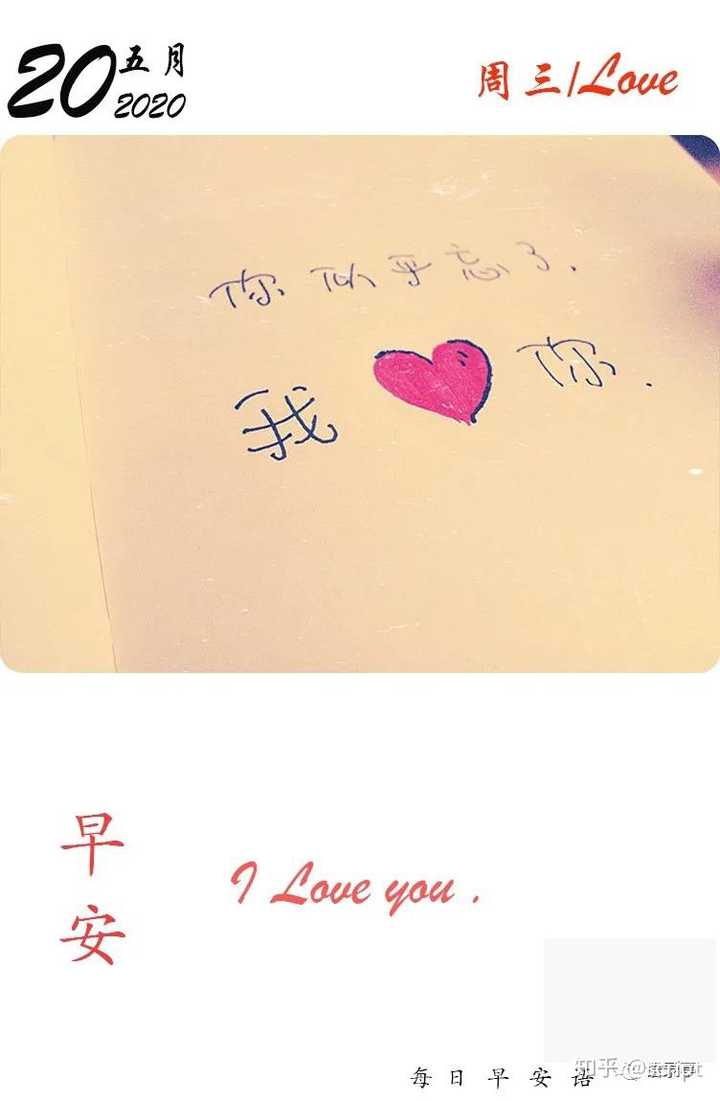 20 五月
2020
周三/Love
你似乎忘了.
我 你.
早安
I Love you .
每日早安语
知乎